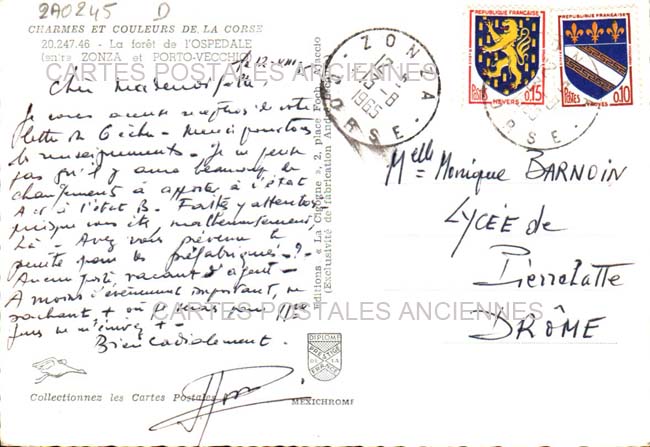 2A0245 D
CHARMES ET COULEURS DE LA CORSE
20.247.46 - La forêt de l'OSPEDALE
(entre ZONZA et PORTO-VECCHIO)
CARTES POSTALES ANCIENNES
le 12-VIII
Cher Mademoiselle.
Je vous accuse réception de votre
lettre de - Merci pour tous
les renseignements - Je ne pense
pas qu'il y aura beaucoup de
changements à apporter à l'état
A et à l'état B. Faites y attention
puisque vous êtes malheureusement
là - Avez vous prévenu le
pour les préfabriqués - ? -
Aucun poste vacant d'agent -
A moins d'évènement important, ne
sachant + où
+ -
Bien cordialement.
Collectionnez les Cartes Postales
Editions « La Cigogne », 2, place Foch, Ajaccio
(Exclusivité de fabrication
DIPLOME
PRESTIGE
DE LA
FRANCE
MEXICHROME
ZONZA
13-8
1965
CORSE
REPUBLIQUE FRANÇAISE
POSTES
0,15
NEVERS
REPUBLIQUE FRANÇAISE
POSTES
0,10
TROYES
CORSE
Melle Monique BARNOIN
LYCÉE de
Pierrelatte
DRÔME
CARTES POSTALES ANCIENNES